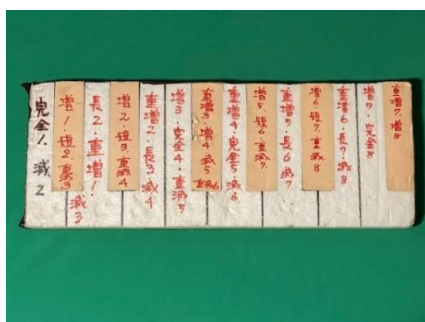 完全1、減2
増1・短2・重減3
長2・重増1・減3
増2・短3・重減4
重増2・長3・減4
増3・完全4・重減5
重増3・増4・減5・重減6
重増4・完全5・減6
増5・短6・重減7
重増5・長6・減7
増6・短7・重減8
重増6・長7・減8
増7・完全8
重増7・増8